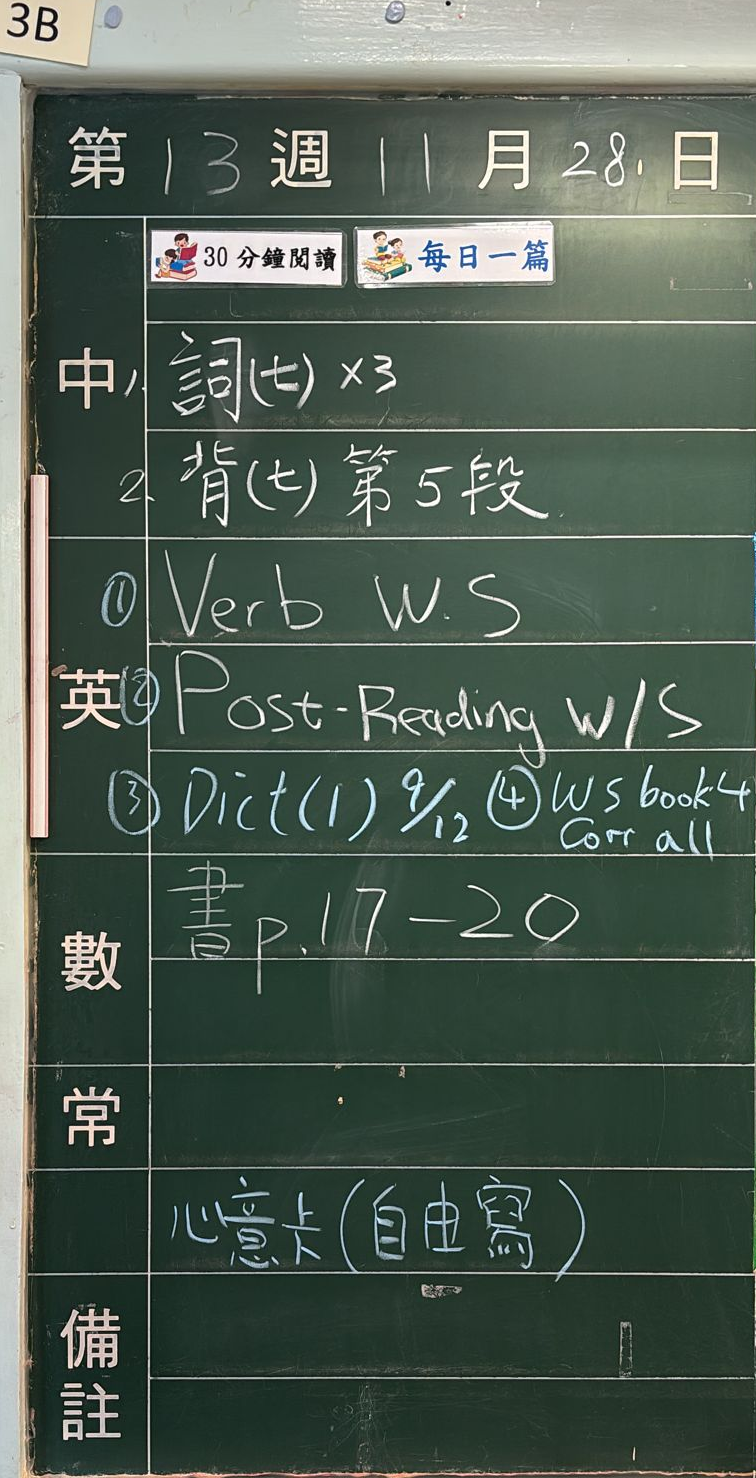 3B
第 13 週 11 月 28 日
30 分鐘閱讀 每日一篇
中 1. 詞(七) ×3
2. 背(七) 第 5 段
① Verb W.S
英 ② Post-Reading W/S
③ Dict(1) 9/12 ④ WS book4
Corr all
數 書 p.17-20
常
心意卡(自由寫)
備註